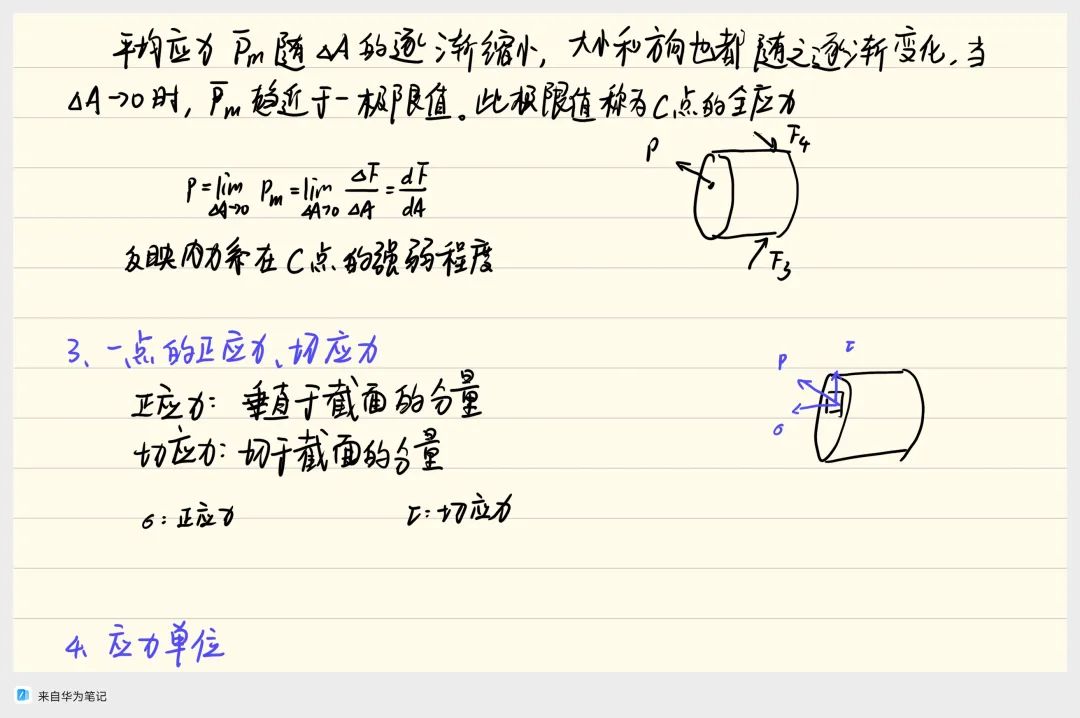 平均应力 P̅m 随 ΔA 的逐渐缩小，大小和方向也都随之逐渐变化，当
ΔA→0时，P̅m 趋近于一极限值。此极限值称为C点的全应力
P=lim ΔA→0 Pm=lim ΔA→0 ΔF/ΔA=dF/dA
P
F4
F3
反映内力系在C点的强弱程度
3、一点的正应力、切应力
正应力：垂直于截面的分量
切应力：切于截面的分量
σ：正应力 τ：切应力
P
τ
σ
4、应力单位
来自华为笔记